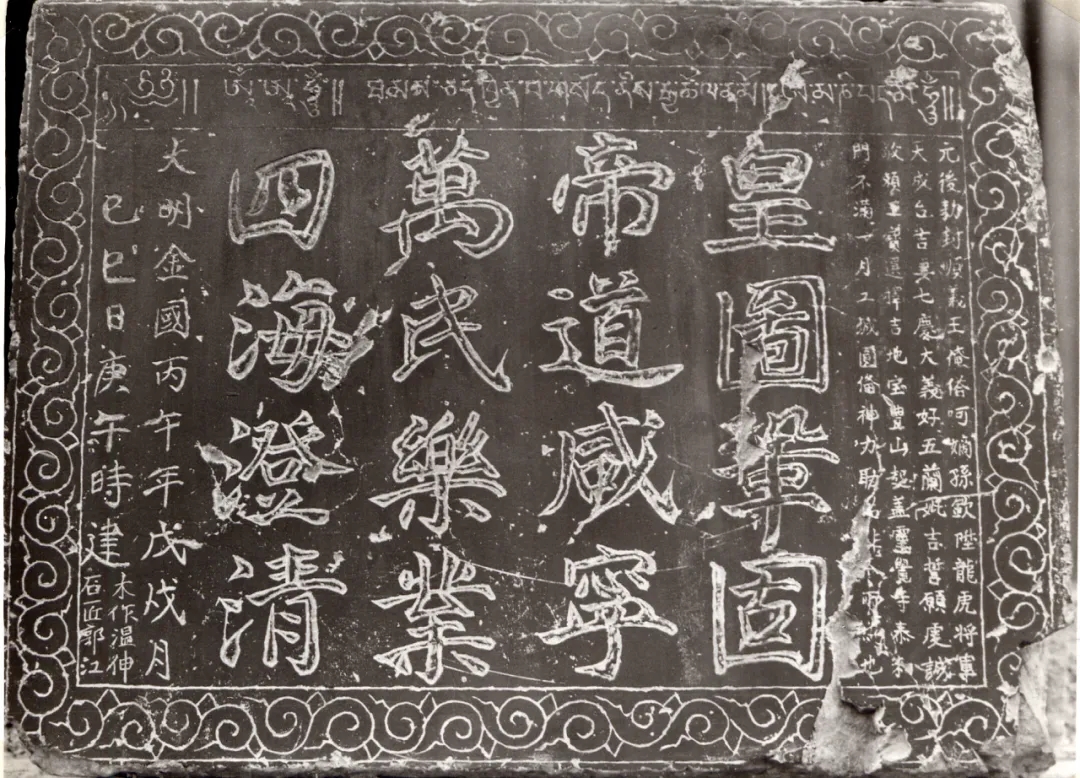 ༄༅།། ཨོཾ ཨཱཿ ཧཱུྃ།།
元後勅封順義王俺答呵嫡孫欽陞龍虎將軍
天成台吉妻七慶大義好五蘭妣吉誓願虔誠
敬賴三寶選擇吉地宝豊山起盖靈覺寺泰和
門不滿一月工城圓俻神力助非人所也
皇圖鞏固
帝道咸寧
萬民樂業
四海澄清
大明金國丙午年戊戌月
己巳日庚午時建
木作温伸
石匠郭江